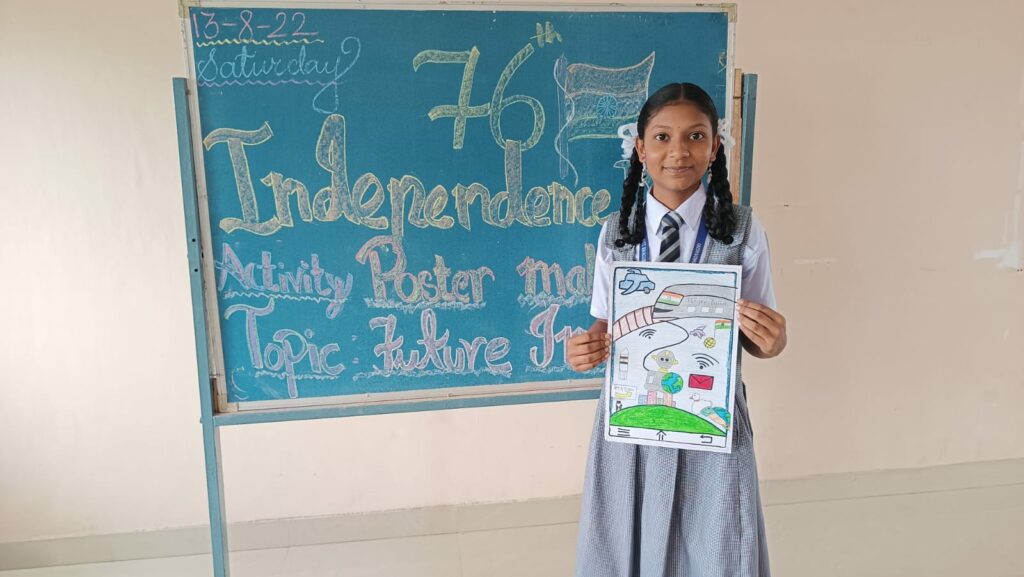 13-8-22
Saturday
76th
Independence
Activity Poster mak
Topic : Future In